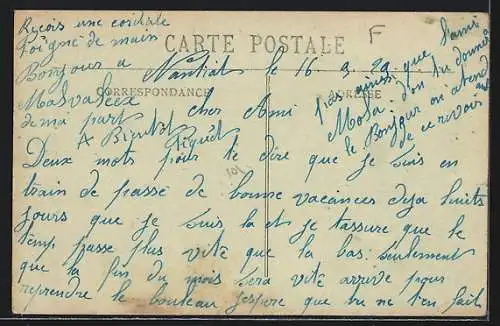 CARTE POSTALE
F
CORRESPONDANCE
ADRESSE
Nantiat le 16-9-29
cher Ami
Deux mots pour te dire que je suis en
train de passé de bonne vacances deja huits
jours que je suis la et je tassure que le
temp passe plus vite que la bas. seulement
que la fin du mois sera vite arrive pour
reprendre le bouleau jespere que tu ne t'en fait
pas ainsi que l'ami
Mosa d'on tu donnera
le Bonjour en attend
de ce revoir
Reçois une cordiale
Poigné de main
Bonjour a
Malvaleix
de ma part
A Bientot